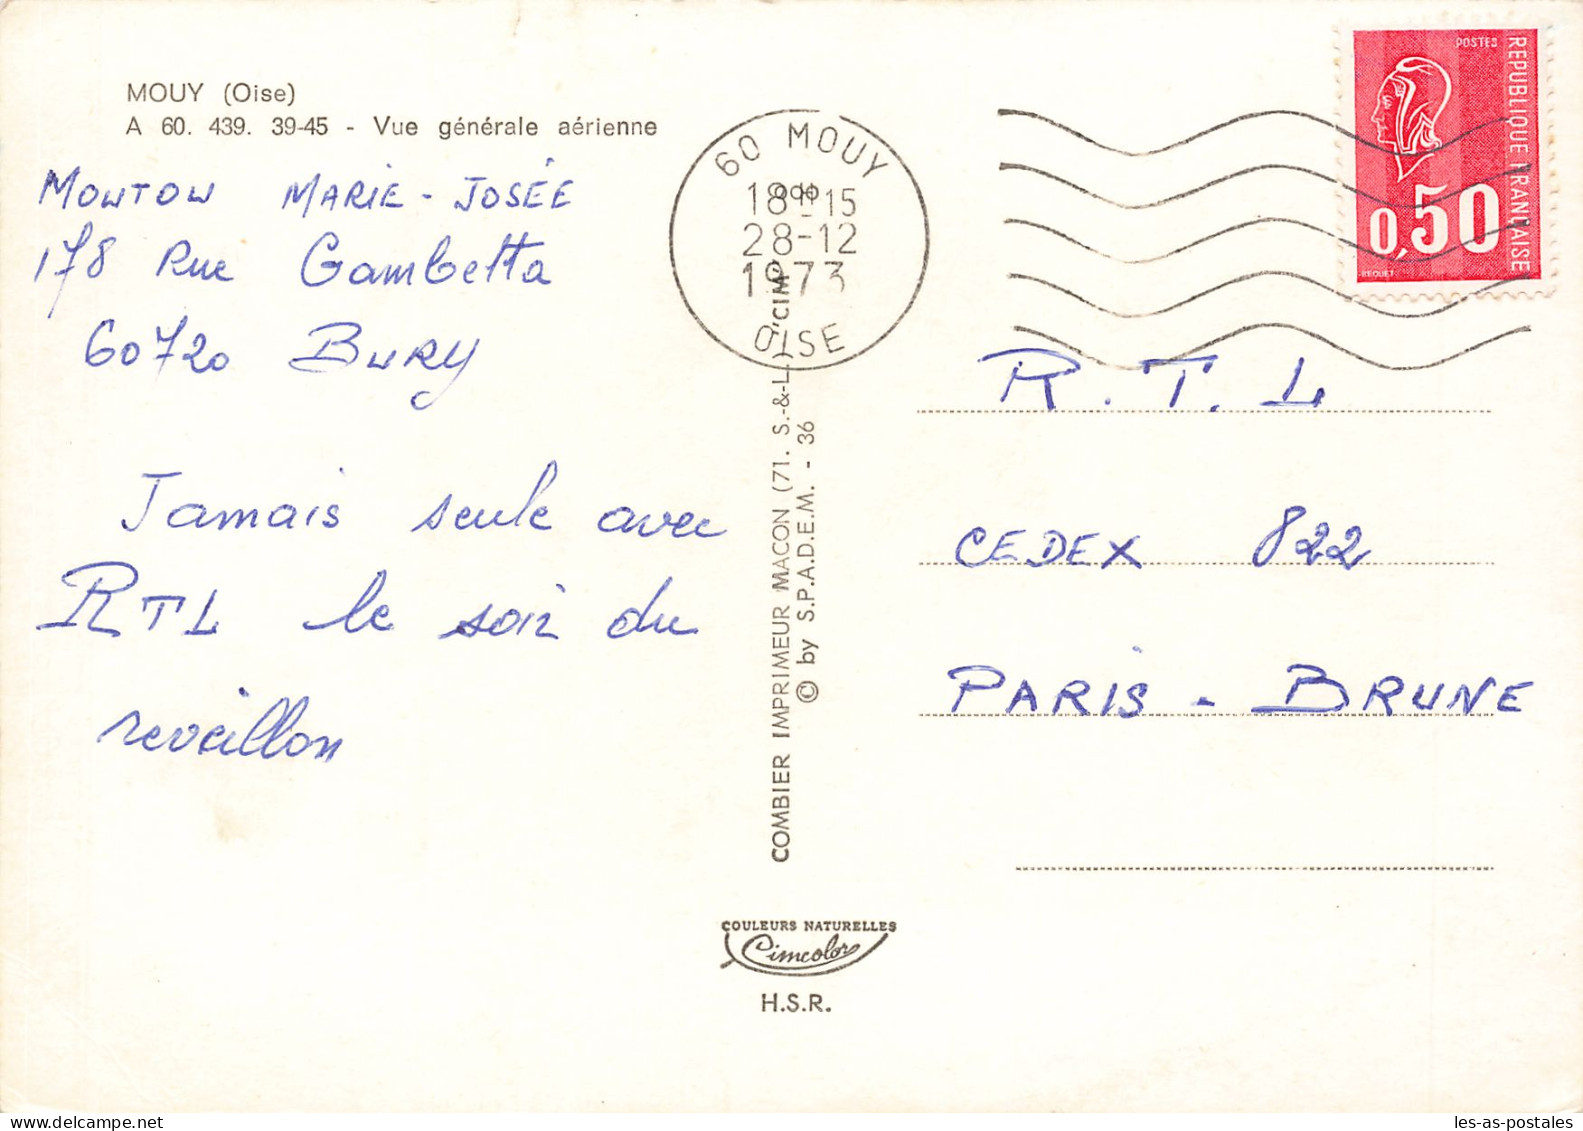 MOUY (Oise)
A 60. 439. 39-45 - Vue générale aérienne
MOUTOU MARIE-JOSÉE
178 Rue Gambetta
60720 BURY
Jamais seule avec
RTL le soir du
reveillon
60 MOUY
18H15
28-12
1973
OISE
POSTES
REPUBLIQUE FRANÇAISE
0,50
BEQUET
R.T.L
CEDEX 822
PARIS - BRUNE
COMBIER IMPRIMEUR MACON (71. S.-&-L.) "CIM"
© by S.P.A.D.E.M. - 36
COULEURS NATURELLES
Cimcolor
H.S.R.
delcampe.net
les-as-postales